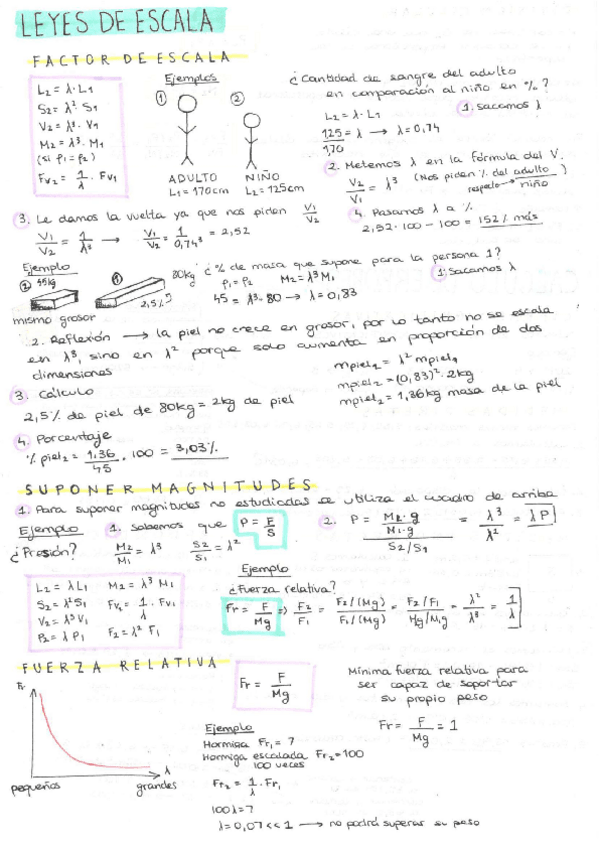 LEYES DE ESCALA
FACTOR DE ESCALA
L2 = λ · L1
S2 = λ² · S1
V2 = λ³ · V1
M2 = λ³ · M1
(si ρ1 = ρ2)
Fv2 = 1/λ · Fv1
Ejemplos
① ②
ADULTO NIÑO
L1 = 170cm L2 = 125cm
¿Cantidad de sangre del adulto
en comparación al niño en %?
1. Sacamos λ
L2 = λ · L1
125/170 = λ → λ = 0,74
2. Metemos λ en la fórmula del V.
V2/V1 = λ³ (Nos piden % del adulto respecto → niño)
3. Le damos la vuelta ya que nos piden V1/V2
V1/V2 = 1/λ³ → V1/V2 = 1/0,74³ = 2,52
4. Pasamos λ a %
2,52 · 100 - 100 = 152% más
Ejemplo
② 45kg ① 80kg
2,5%
mismo grosor
¿% de masa que supone para la persona 1?
ρ1 = ρ2 M2 = λ³ M1
1. Sacamos λ
45 = λ³ · 80 → λ = 0,83
2. Reflexión → la piel no crece en grosor, por lo tanto no se escala
en λ³, sino en λ² porque solo aumenta en proporción de dos
dimensiones
mpiel2 = λ² mpiel1
mpiel2 = (0,83)² · 2kg
mpiel2 = 1,36kg masa de la piel
3. Cálculo
2,5% de piel de 80kg = 2kg de piel
4. Porcentaje
% piel2 = 1,36/45 · 100 = 3,03%
SUPONER MAGNITUDES
1. Para suponer magnitudes no estudiadas se utiliza el cuadro de arriba
Ejemplo 1. Sabemos que P = F/S
¿Presión? M2/M1 = λ³ S2/S1 = λ²
2. P = (M2 · g / M1 · g) / (S2/S1) = λ³/λ² = λP
L2 = λ L1 M2 = λ³ M1
S2 = λ² S1 Fv2 = 1/λ · Fv1
V2 = λ³ V1
P2 = λ P1 F2 = λ² F1
Ejemplo
¿Fuerza relativa?
Fr = F/Mg ⇒ F2/F1 = F2/(Mg) / F1/(Mg) = F2/F1 / Mg/M1g = λ²/λ³ = 1/λ
FUERZA RELATIVA
Fr
λ
pequeños grandes
Fr = F/Mg
Mínima fuerza relativa para
ser capaz de soportar
su propio peso
Fr = F/Mg = 1
Ejemplo
Hormiga Fr1 = 7
Hormiga escalada Fr2 = 100
100 veces
Fr2 = 1/λ · Fr1
100λ = 7
λ = 0,07 << 1 → no podrá superar su peso